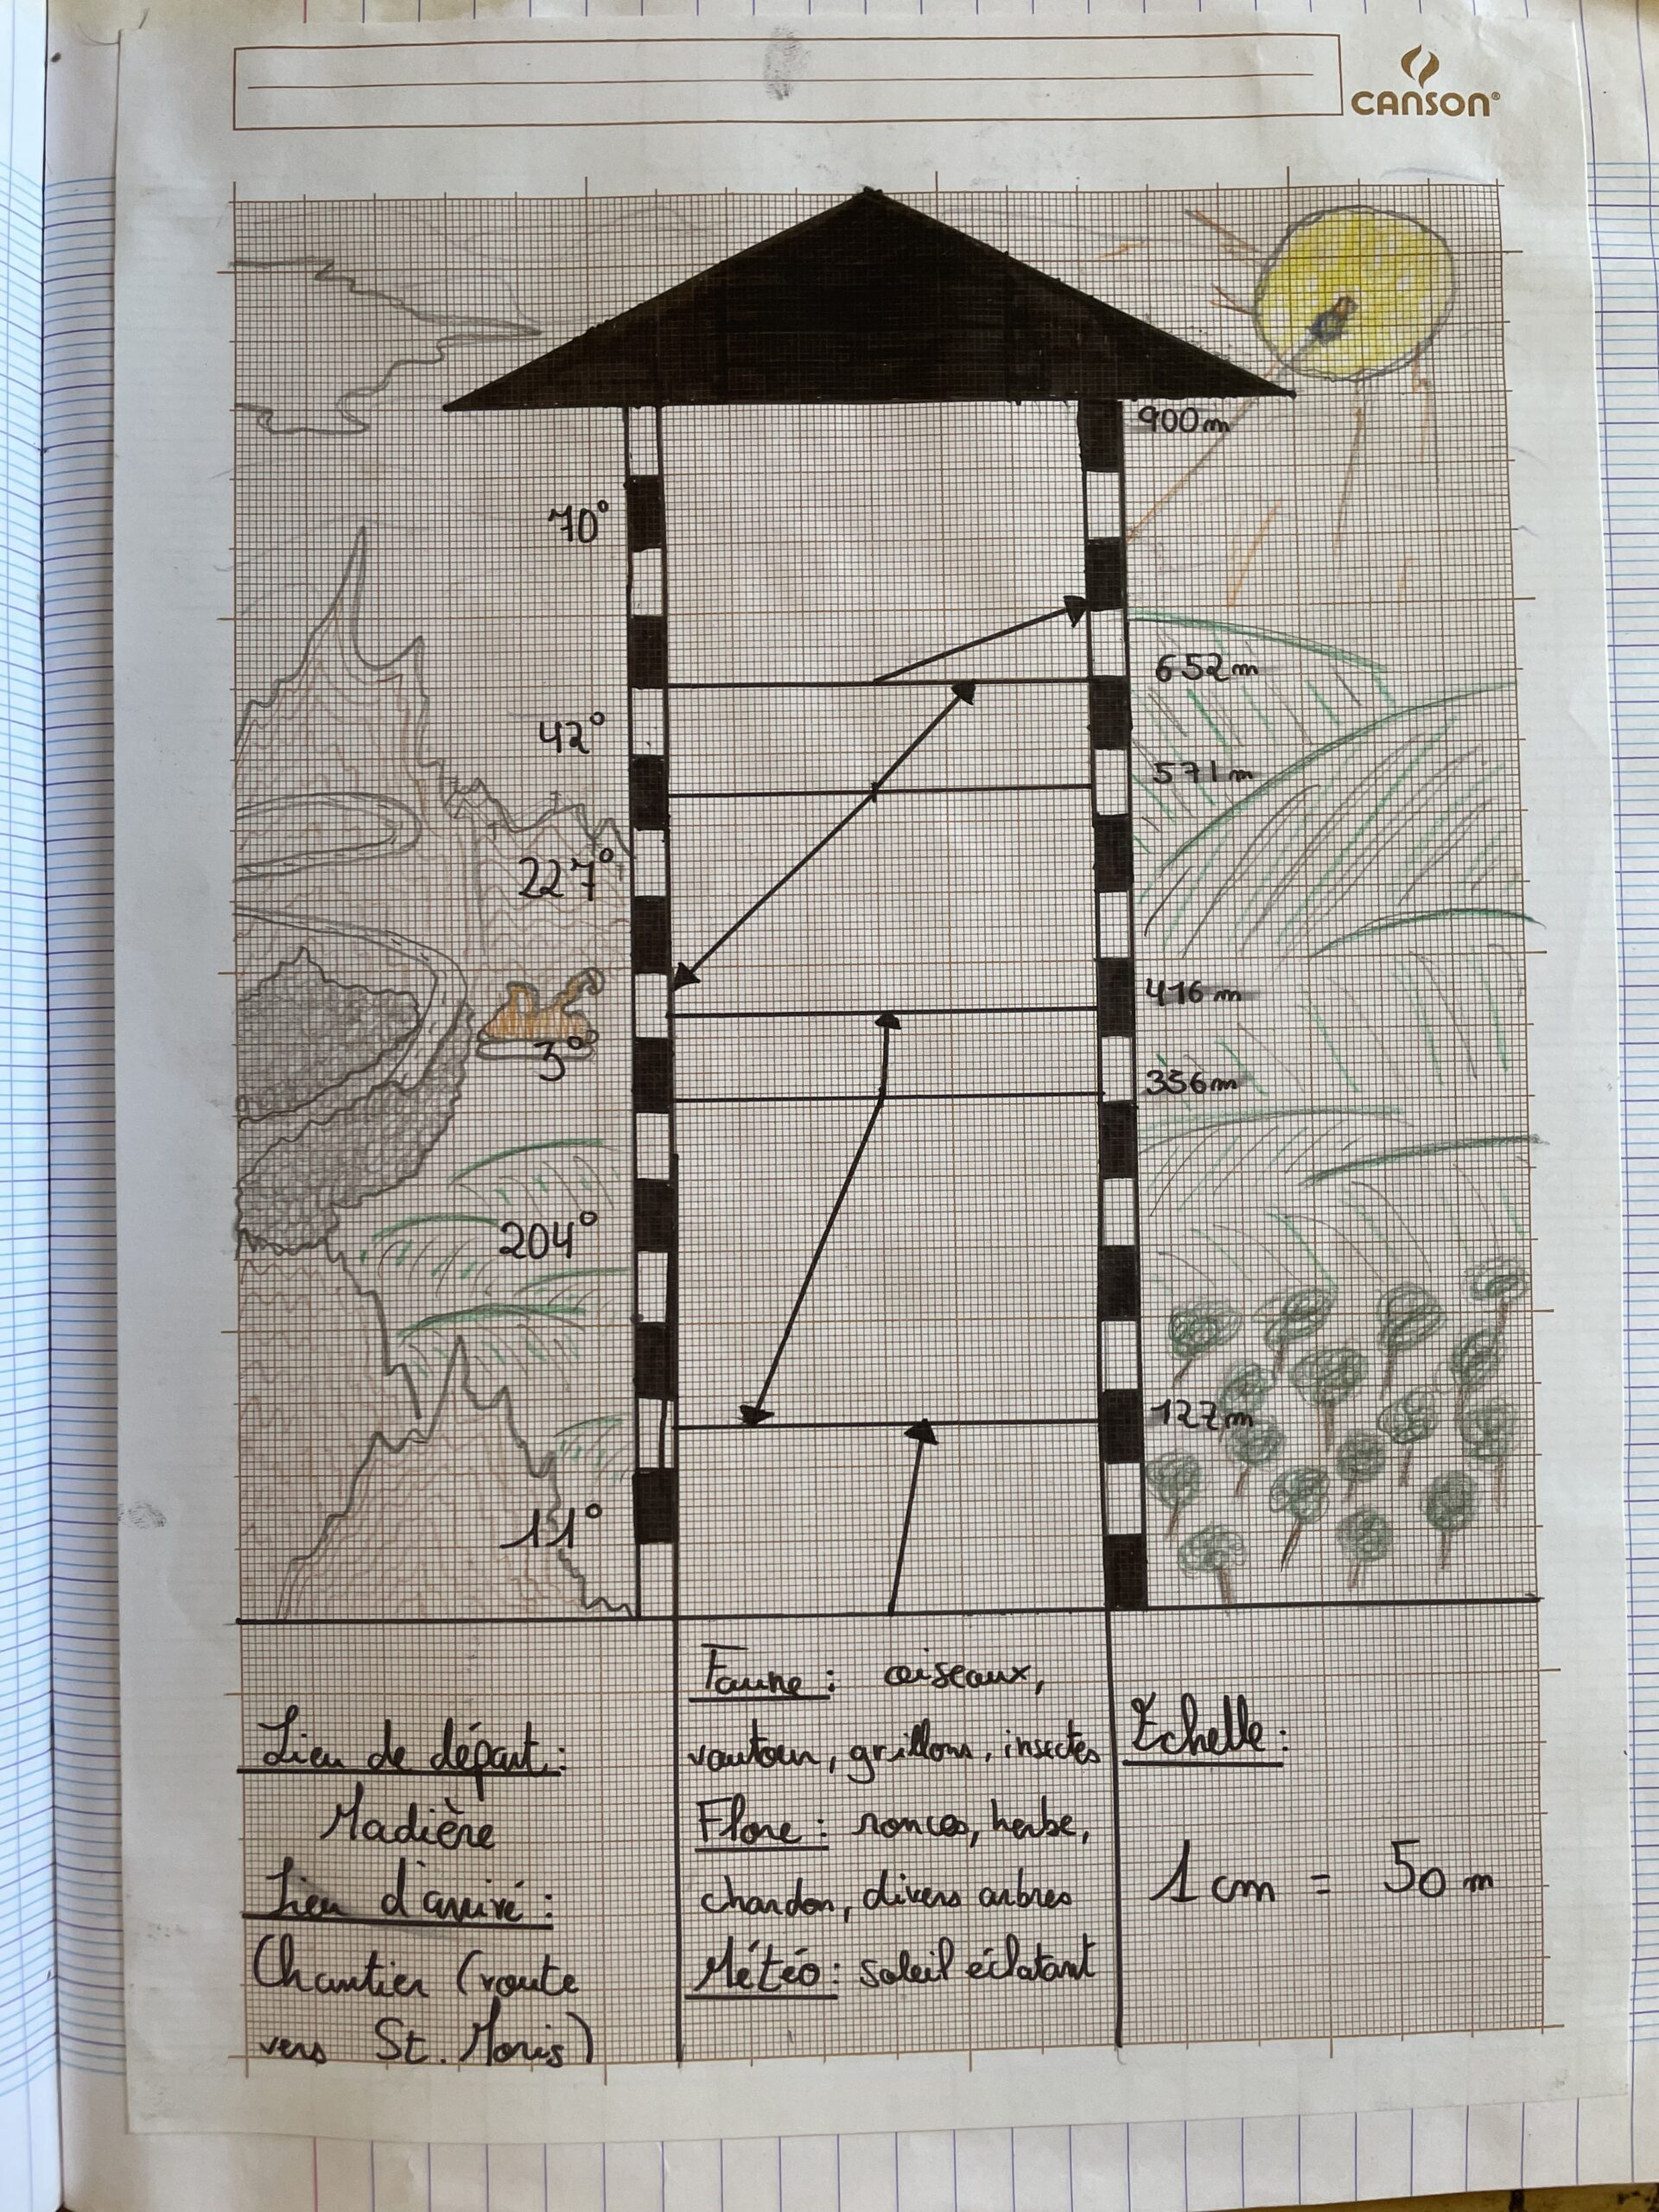 CANSON®
900m
70°
652m
42°
571m
227°
416m
3°
356m
204°
127m
11°
Lieu de départ:
Madière
Lieu d'arrivé:
Chantier (route
vers St. Moris)
Faune: oiseaux,
vautour, grillons, insectes
Flore: ronces, herbe,
chardon, divers arbres
Météo: soleil éclatant
Echelle:
1 cm = 50 m